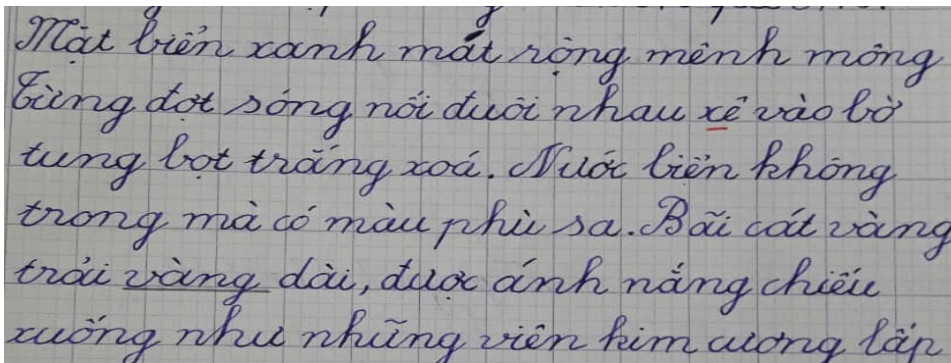 Mặt biển xanh mát rộng mênh mông
Từng đợt sóng nối đuôi nhau xê vào bờ
tung bọt trắng xoá. Nước biển không
trong mà có màu phù sa. Bãi cát vàng
trải vàng dài, được ánh nắng chiếu
xuống như những viên kim cương lấp